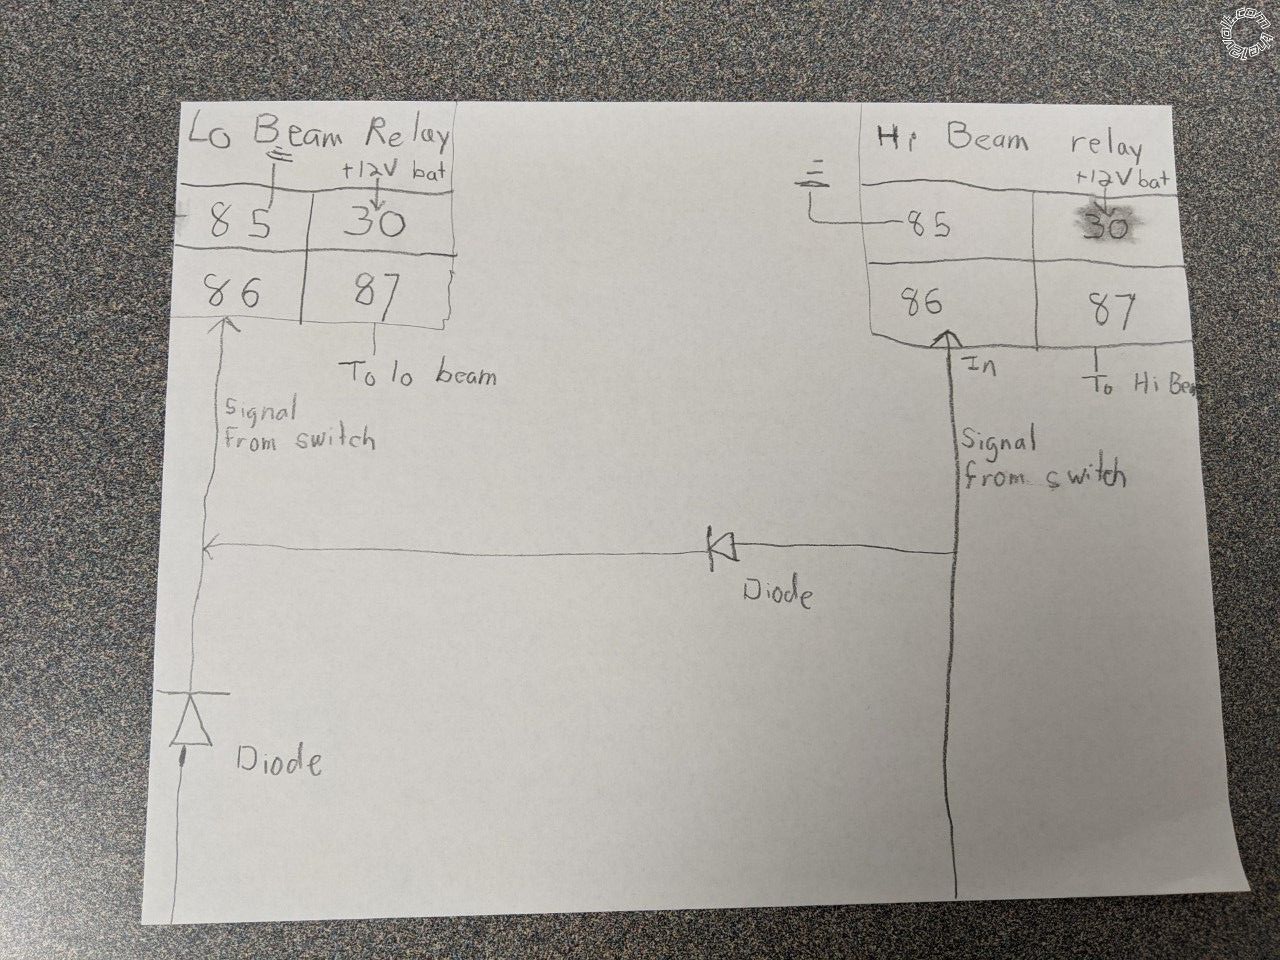 Lo Beam Relay
+12V bat
85
30
86
87
To lo beam
Signal
from switch
Diode
Hi Beam relay
+12V bat
85
30
86
87
In
To Hi
Signal
from switch
Diode
the12volt.com